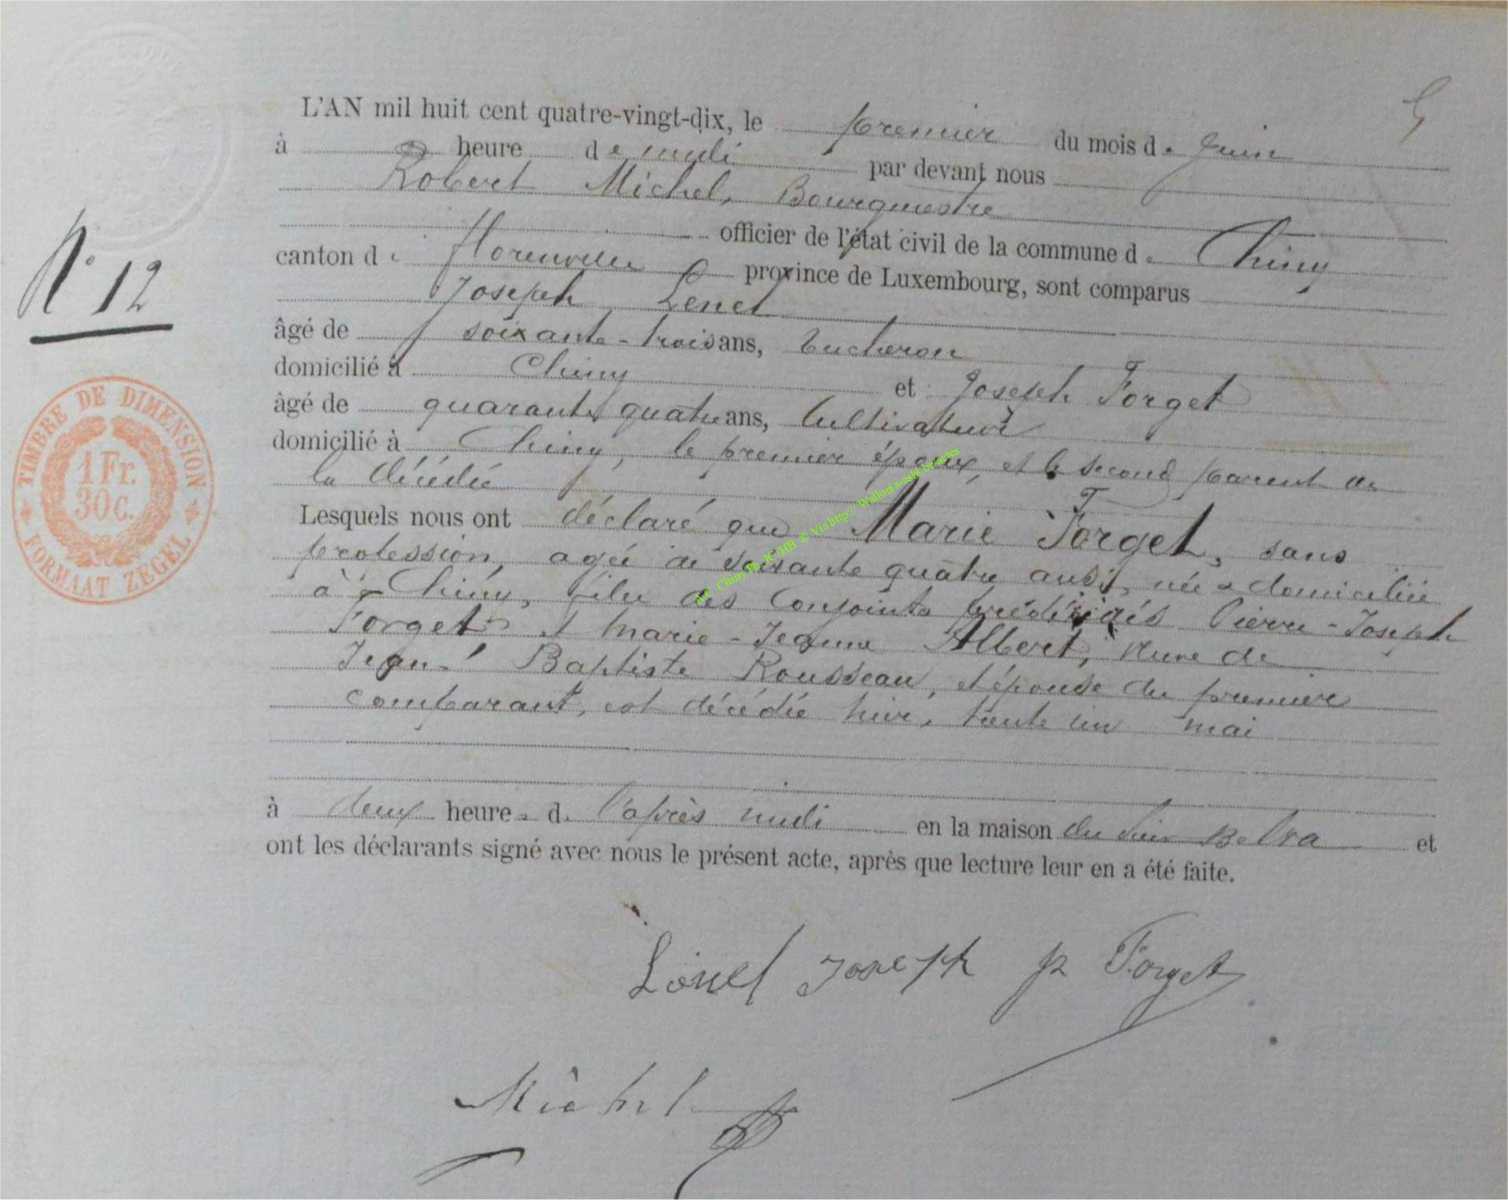 L'AN mil huit cent quatre-vingt-dix, le premier du mois de Juin
à heure de midi par devant nous
Robert Michel, Bourgmestre
officier de l'état civil de la commune de Chiny
canton de Florenville province de Luxembourg, sont comparus
Joseph Lenel
N° 12
âgé de soixante-trois ans, bucheron
domicilié à Chiny et Joseph Forget
âgé de quarante quatre ans, Cultivateur
domicilié à Chiny, le premier époux, et le second parent de
la décédée
TIMBRE DE DIMENSION
1 Fr.
30 c.
FORMAAT ZEGEL
Lesquels nous ont déclaré que Marie Forget, sans
profession, agée de soixante quatre ans, née & domiciliée
à Chiny, fille des Conjoints prédécédés Pierre-Joseph
Forget & Marie-Jeanne Albert, veuve de
Jean-Baptiste Rousseau, et épouse du premier
comparant, est décédée hier, trente un mai
à deux heures de l'après midi en la maison du sieur et
ont les déclarants signé avec nous le présent acte, après que lecture leur en a été faite.
Lenel Joseph Forget
Michel